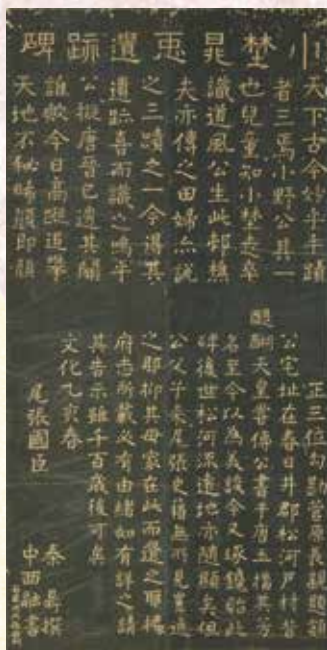 小埜晁𢘑遺跡碑
天下古今妙乎手蹟
者三焉小野公其一
也兒童知小埜走卒
識道風公生此邨樵
夫亦傳之田婦亦説
之三蹟之一今得其
遺跡喜而識之嗚乎
公擬唐晉已遺其
誰今日高追攀
天地不秘晞顏即顏
正三位勘菅原長親題額
公宅址在春日井郡松河戸村昔
醍醐天皇嘗俾公書其芳
名至今以為美談今又琢鐫此
碑後世松河深遠地亦随顕矣但
公父子來尾張史籍無所見豈
之耶抑其母家在此而還之耶
府志所載必有由緒如有詳之請
其告示雖千百歳後可矣
文化乙亥春
尾張國臣
秦鼎撰
中西融書